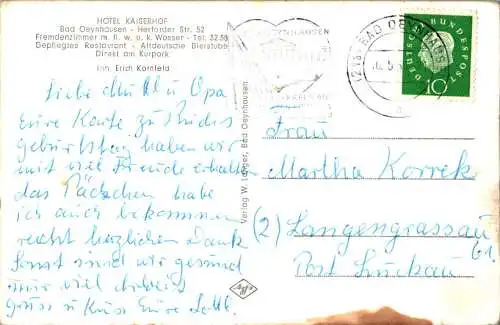 HOTEL KAISERHOF
Bad Oeynhausen - Herforder Str. 52
Fremdenzimmer m. fl. w. u. k. Wasser - Tel. 32 56
Gepflegtes Restaurant - Altdeutsche Bierstube
Direkt am Kurpark
Inh. Erich Kornfeld
Liebe Mutti u Opa
Eure Karte zu
Geburtstag haben wir
mit viel Freude erhalten
das Päckchen habe
ich auch bekommen
recht herzlichen Dank
Sonst sind wir gesund
nur viel Arbeit
Gruss u Kuss Eure
Verlag W. Langer, Bad Oeynhausen
BAD OEYNHAUSEN
DEUTSCHE BUNDESPOST
10
Frau
Martha Korrek
(2) Langengrassau
61.
Post Luckau
Agfa